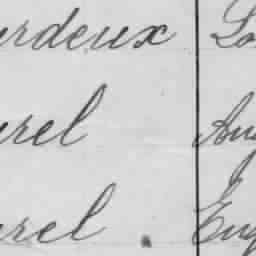 urdeux Lo
urel Au
urel . Eug